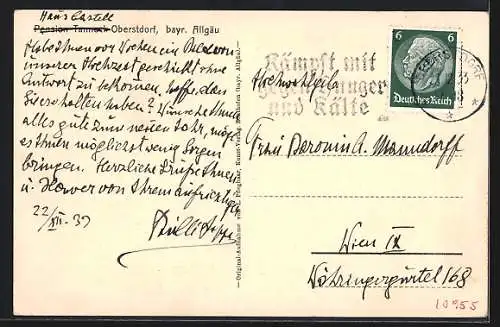 Haus Castell
Pension Tanneck Oberstdorf, bayr. Allgäu
Habe Ihnen vor Wochen ein
unserer Hochzeit geschickt ohne
Antwort zu bekommen. hoffe, dass
Sie es erhalten haben? Wünsche Ihnen
alles gute zum neuen Jahr, möge
es Ihnen möglichst wenig Sorgen
bringen. Herzliche Grüße Ihnen
u. von Ihrem aufrichtigen
22/XII. 33
Kämpft mit
gegen Hunger
und Kälte
6 6
Deutsches Reich
Hochwohlgeb.
Frau Baronin A. Manndorff
Wien IX
Währingergürtel 168
10955